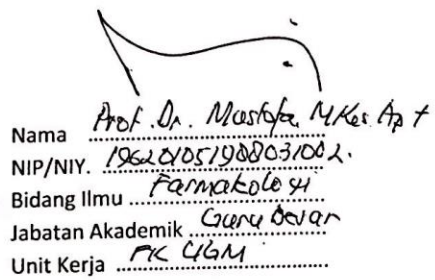 Nama Prof. Dr. Mustofa, M.Kes. Apt
NIP/NIY. 196201051988031002.
Bidang Ilmu Farmakologi
Jabatan Akademik Guru Besar
Unit Kerja FK UGM